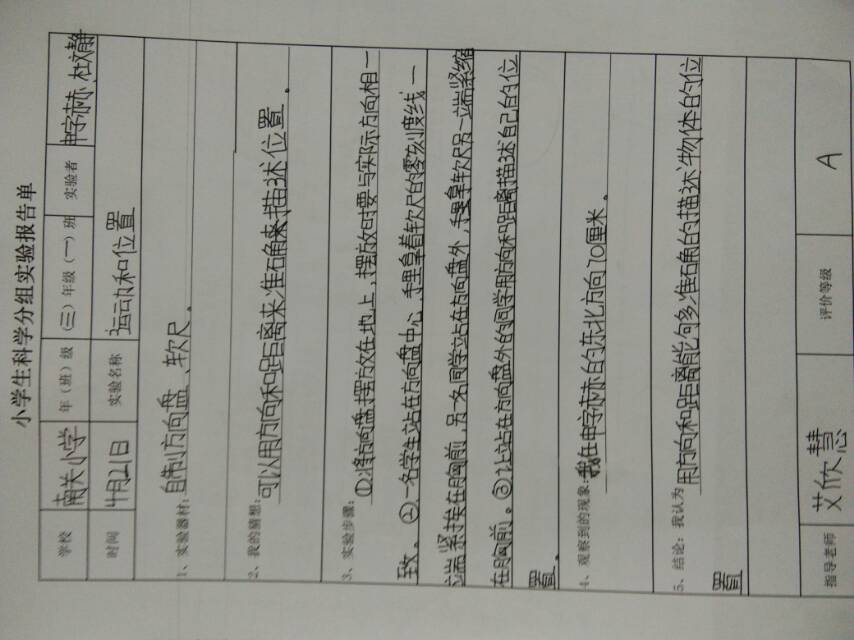 小学生科学分组实验报告单
学校 南关小学 年（班）级 （三）年级（一）班 实验者 申字赫、杜文静
时间 4月21日 实验名称 运动和位置
1、实验器材： 自制方向盘、软尺。
2、我的猜想：
可以用方向和距离来准确来描述位置。
3、实验步骤：
①将方向盘摆放在地上，摆放时要与实际方向相一
致。②一名学生站在方向盘中心，手里拿着软尺的零刻度线一
端紧挨在胸前，另一名同学站在方向盘外，手里拿软尺另一端紧缩
在胸前。③让站在方向盘外的同学用方向和距离描述自己的位
置。
4、观察到的现象：我在申字赫的东北方向70厘米。
5、结论：我认为 用方向和距离能够准确的描述物体的位
置
指导老师 艾欣慧 评价等级 A